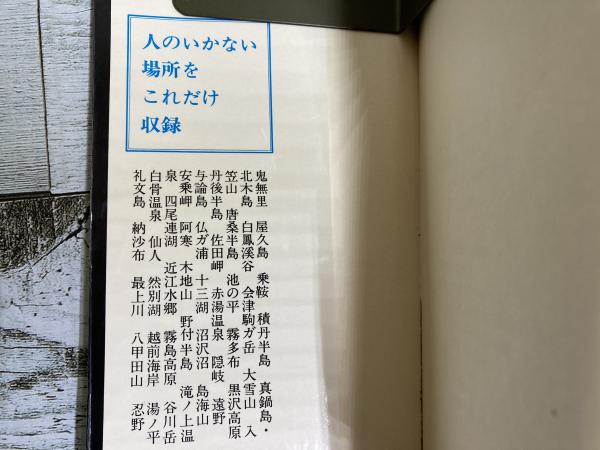 人のいかない
場所を
これだけ
収録
鬼無里 屋久島 乗鞍 積丹半島 真鍋島・
北木島 白鳳溪谷 会津駒ガ岳 大雪山 入
笠山 唐桑半島 池の平 霧多布 黒沢高原
丹後半島 佐田岬 赤湯温泉 隠岐 遠野
与論島 仏ガ浦 十三湖 沼沢沼 鳥海山
安乗岬 阿寒 木地山 野付半島 滝ノ上温
泉 四尾連湖 近江水郷 霧島高原 谷川岳
白骨温泉 仙人 然別湖 越前海岸 湯ノ平
礼文島 納沙布 最上川 八甲田山 忍野